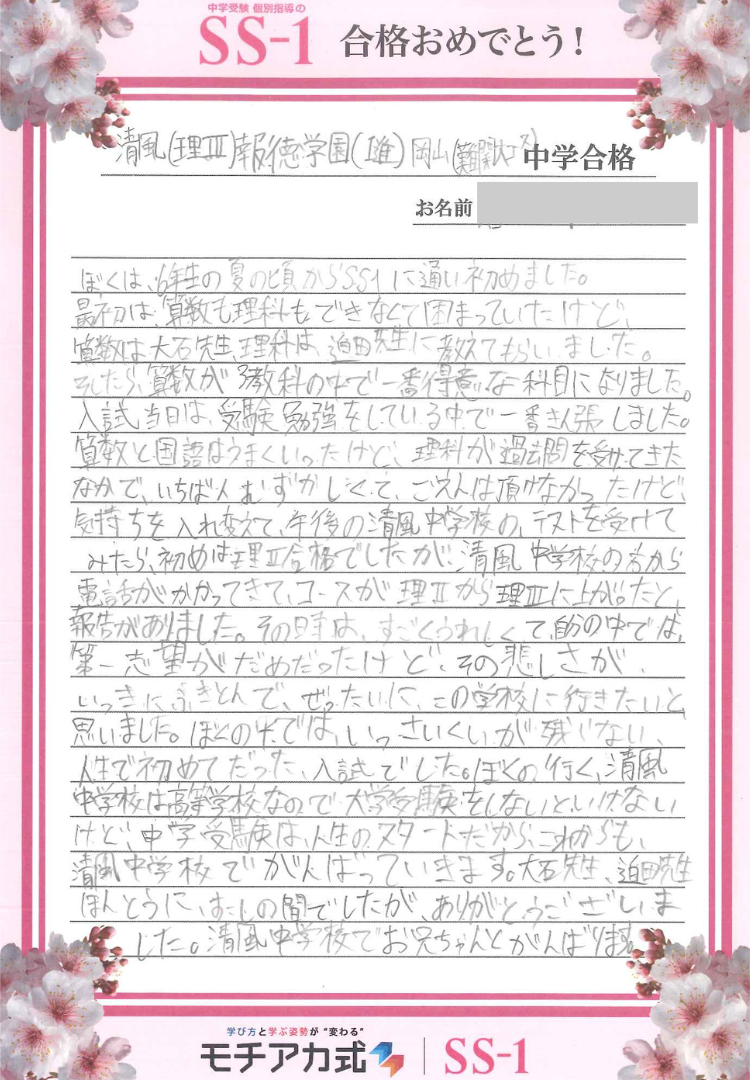 中学受験 個別指導の
SS-1 合格おめでとう!
清風(理Ⅲ)報徳学園(Ⅰ進)岡山(難関大コース)中学合格
お名前
ぼくは、6年生の夏の頃からSS1に通い初めました。
最初は、算数も理科もできなくて困まっていたけど、
算数は大石先生、理科は、迫田先生に教えてもらいました。
そしたら、算数が3教科の中で一番得意な科目になりました。
入試当日は、受験勉強をしている中で一番きん張しました。
算数と国語はうまくいったけど、理科が過去問を受けてきた
なかで、いちばんむずかしくて、ごえんは頂けなかったけど、
気持ちを入れ変えて、午後の清風中学校の、テストを受けて
みたら、初めは理Ⅱ合格でしたが、清風中学校の方から
電話がかかってきて、コースが理Ⅱから理Ⅲに上がったと、
報告がありました。その時は、すごくうれしくて、自分の中では、
第一志望がだめだったけど、その悲しさが、
いっきにふきとんで、ぜったいに、この学校に行きたいと
思いました。ぼくの中では、いっさいくいが残らない、
人生で初めてだった、入試でした。ぼくの行く、清風
中学校は高等学校なので大学受験をしないといけない
けど、中学受験は、人生のスタートだから、これからも、
清風中学校でがんばっていきます。大石先生、迫田先生
ほんとうに、すこしの間でしたが、ありがとうございま
した。清風中学校でお兄ちゃんとがんばります。
学び方と学ぶ姿勢が“変わる”
モチアカ式 SS-1